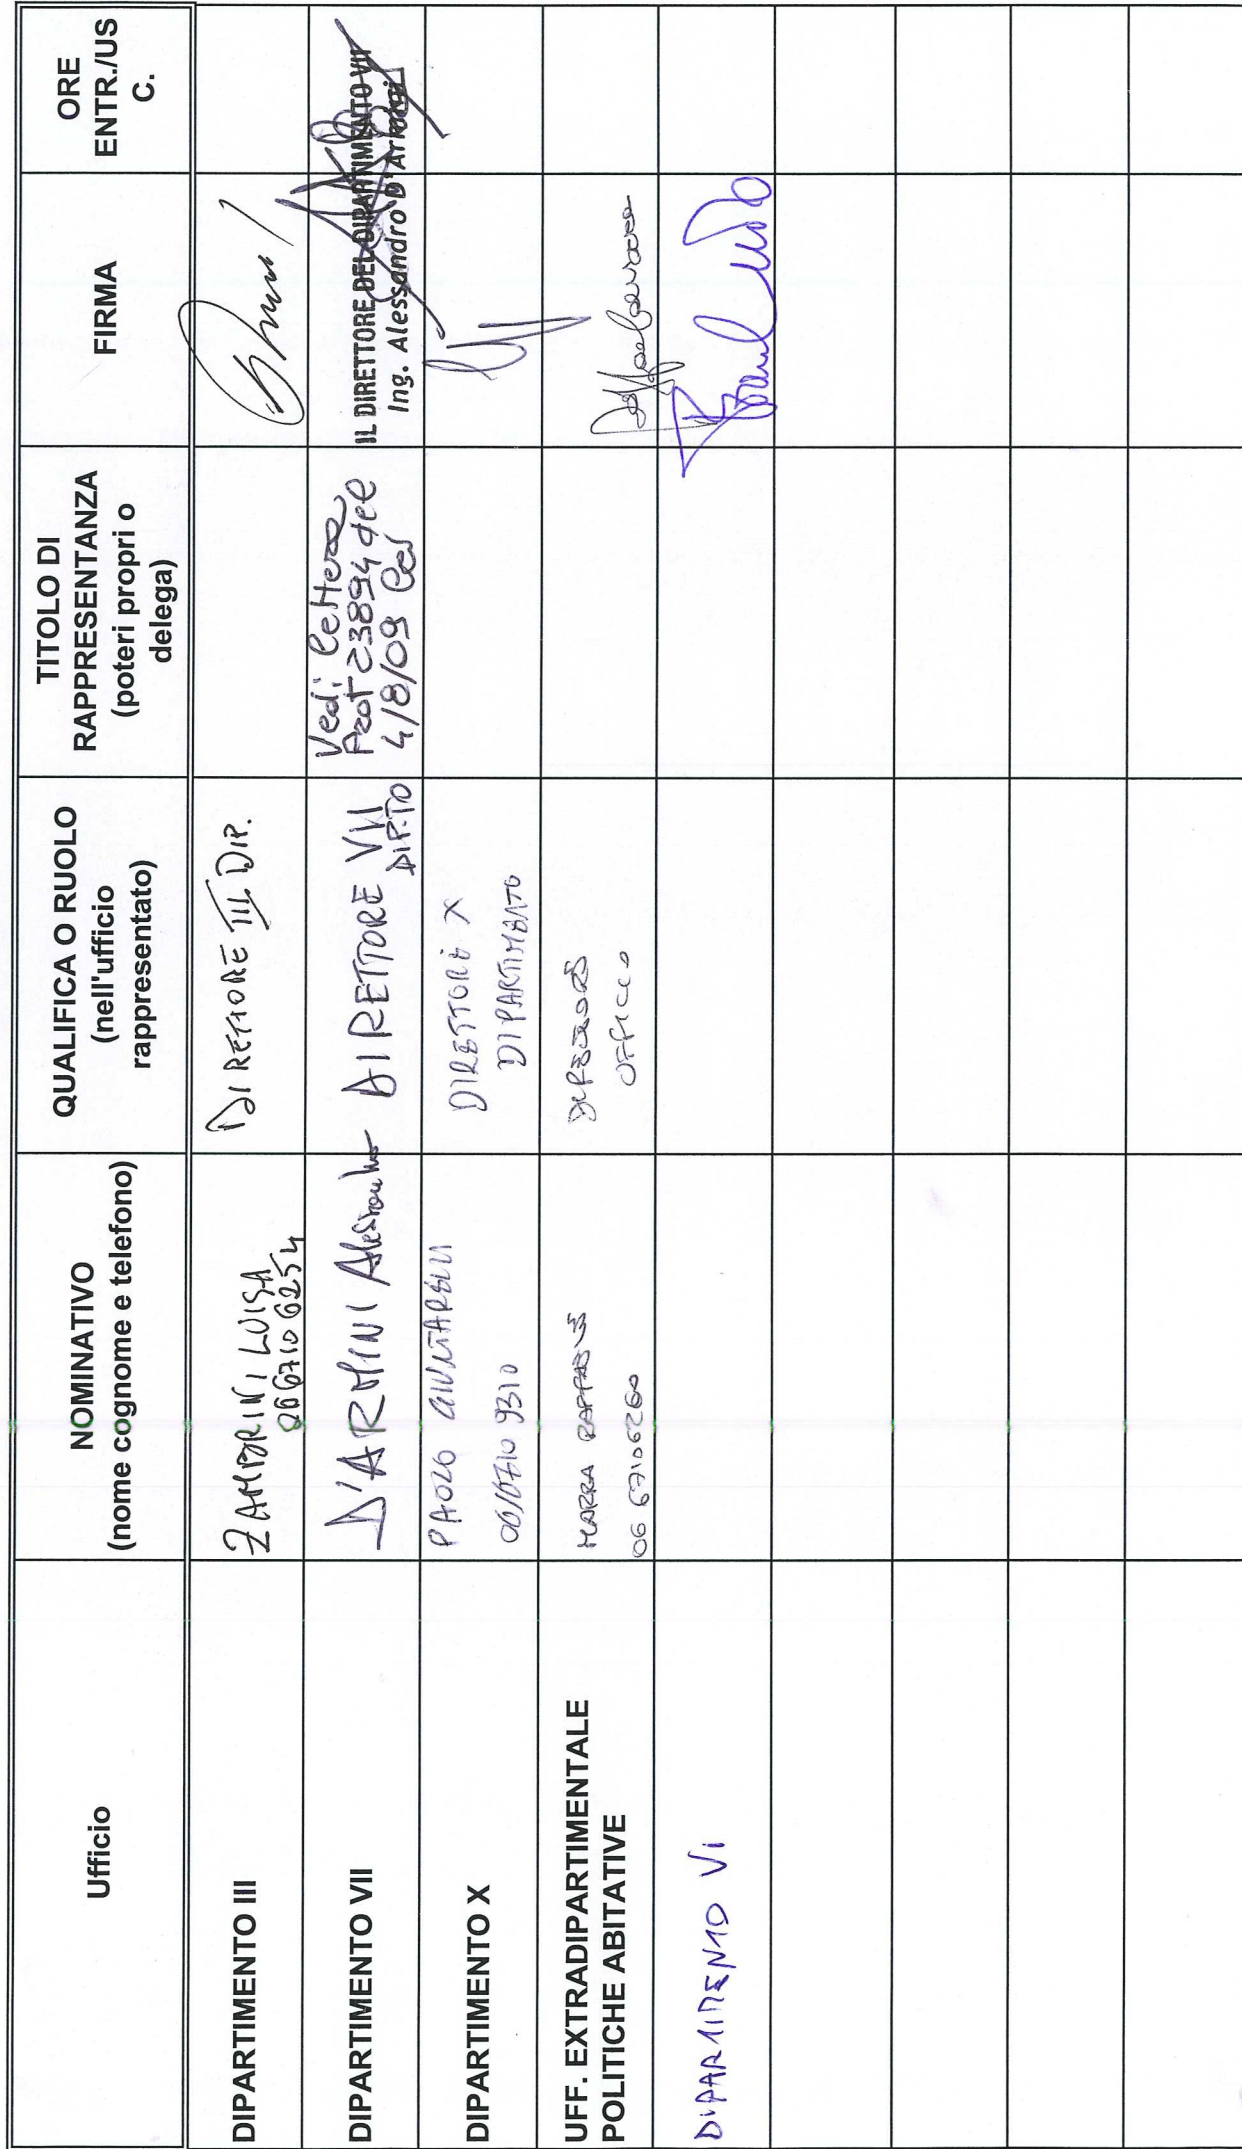 Ufficio
NOMINATIVO
(nome cognome e telefono)
QUALIFICA O RUOLO
(nell'ufficio
rappresentato)
TITOLO DI
RAPPRESENTANZA
(poteri propri o
delega)
FIRMA
ORE
ENTR./US
C.
DIPARTIMENTO III
ZAMBRINI LUISA
06 6710 6254
DIRETTORE III DIP.
DIPARTIMENTO VII
D'ARMINI Alessandro
DIRETTORE VII
DIP.TO
Vedi lettera
Prot 23894 del
4/8/09
IL DIRETTORE DEL DIPARTIMENTO VII
Ing. Alessandro D'Armini
DIPARTIMENTO X
PAOLO GIUNTARELLI
06/6710 9310
DIRETTORE X
DIPARTIMENTO
UFF. EXTRADIPARTIMENTALE
POLITICHE ABITATIVE
MARRA RAFFAELE
06 67106260
DIRETTORE
UFFICIO
DIPARTIMENTO VI